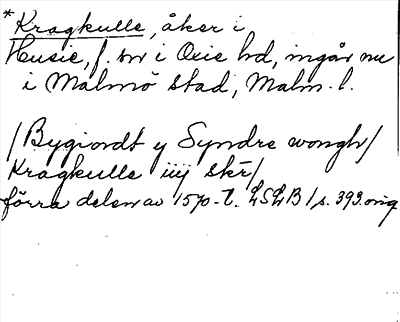 *Kragkulle, åker i
Husie, f. sn i Oxie hd, ingår nu
i Malmö stad, Malm. l.
/Bygiordt y Syndre wongh/
Kragkulle iiij skr/
förra delen av 1570-t. LSLB 1 s. 393. orig